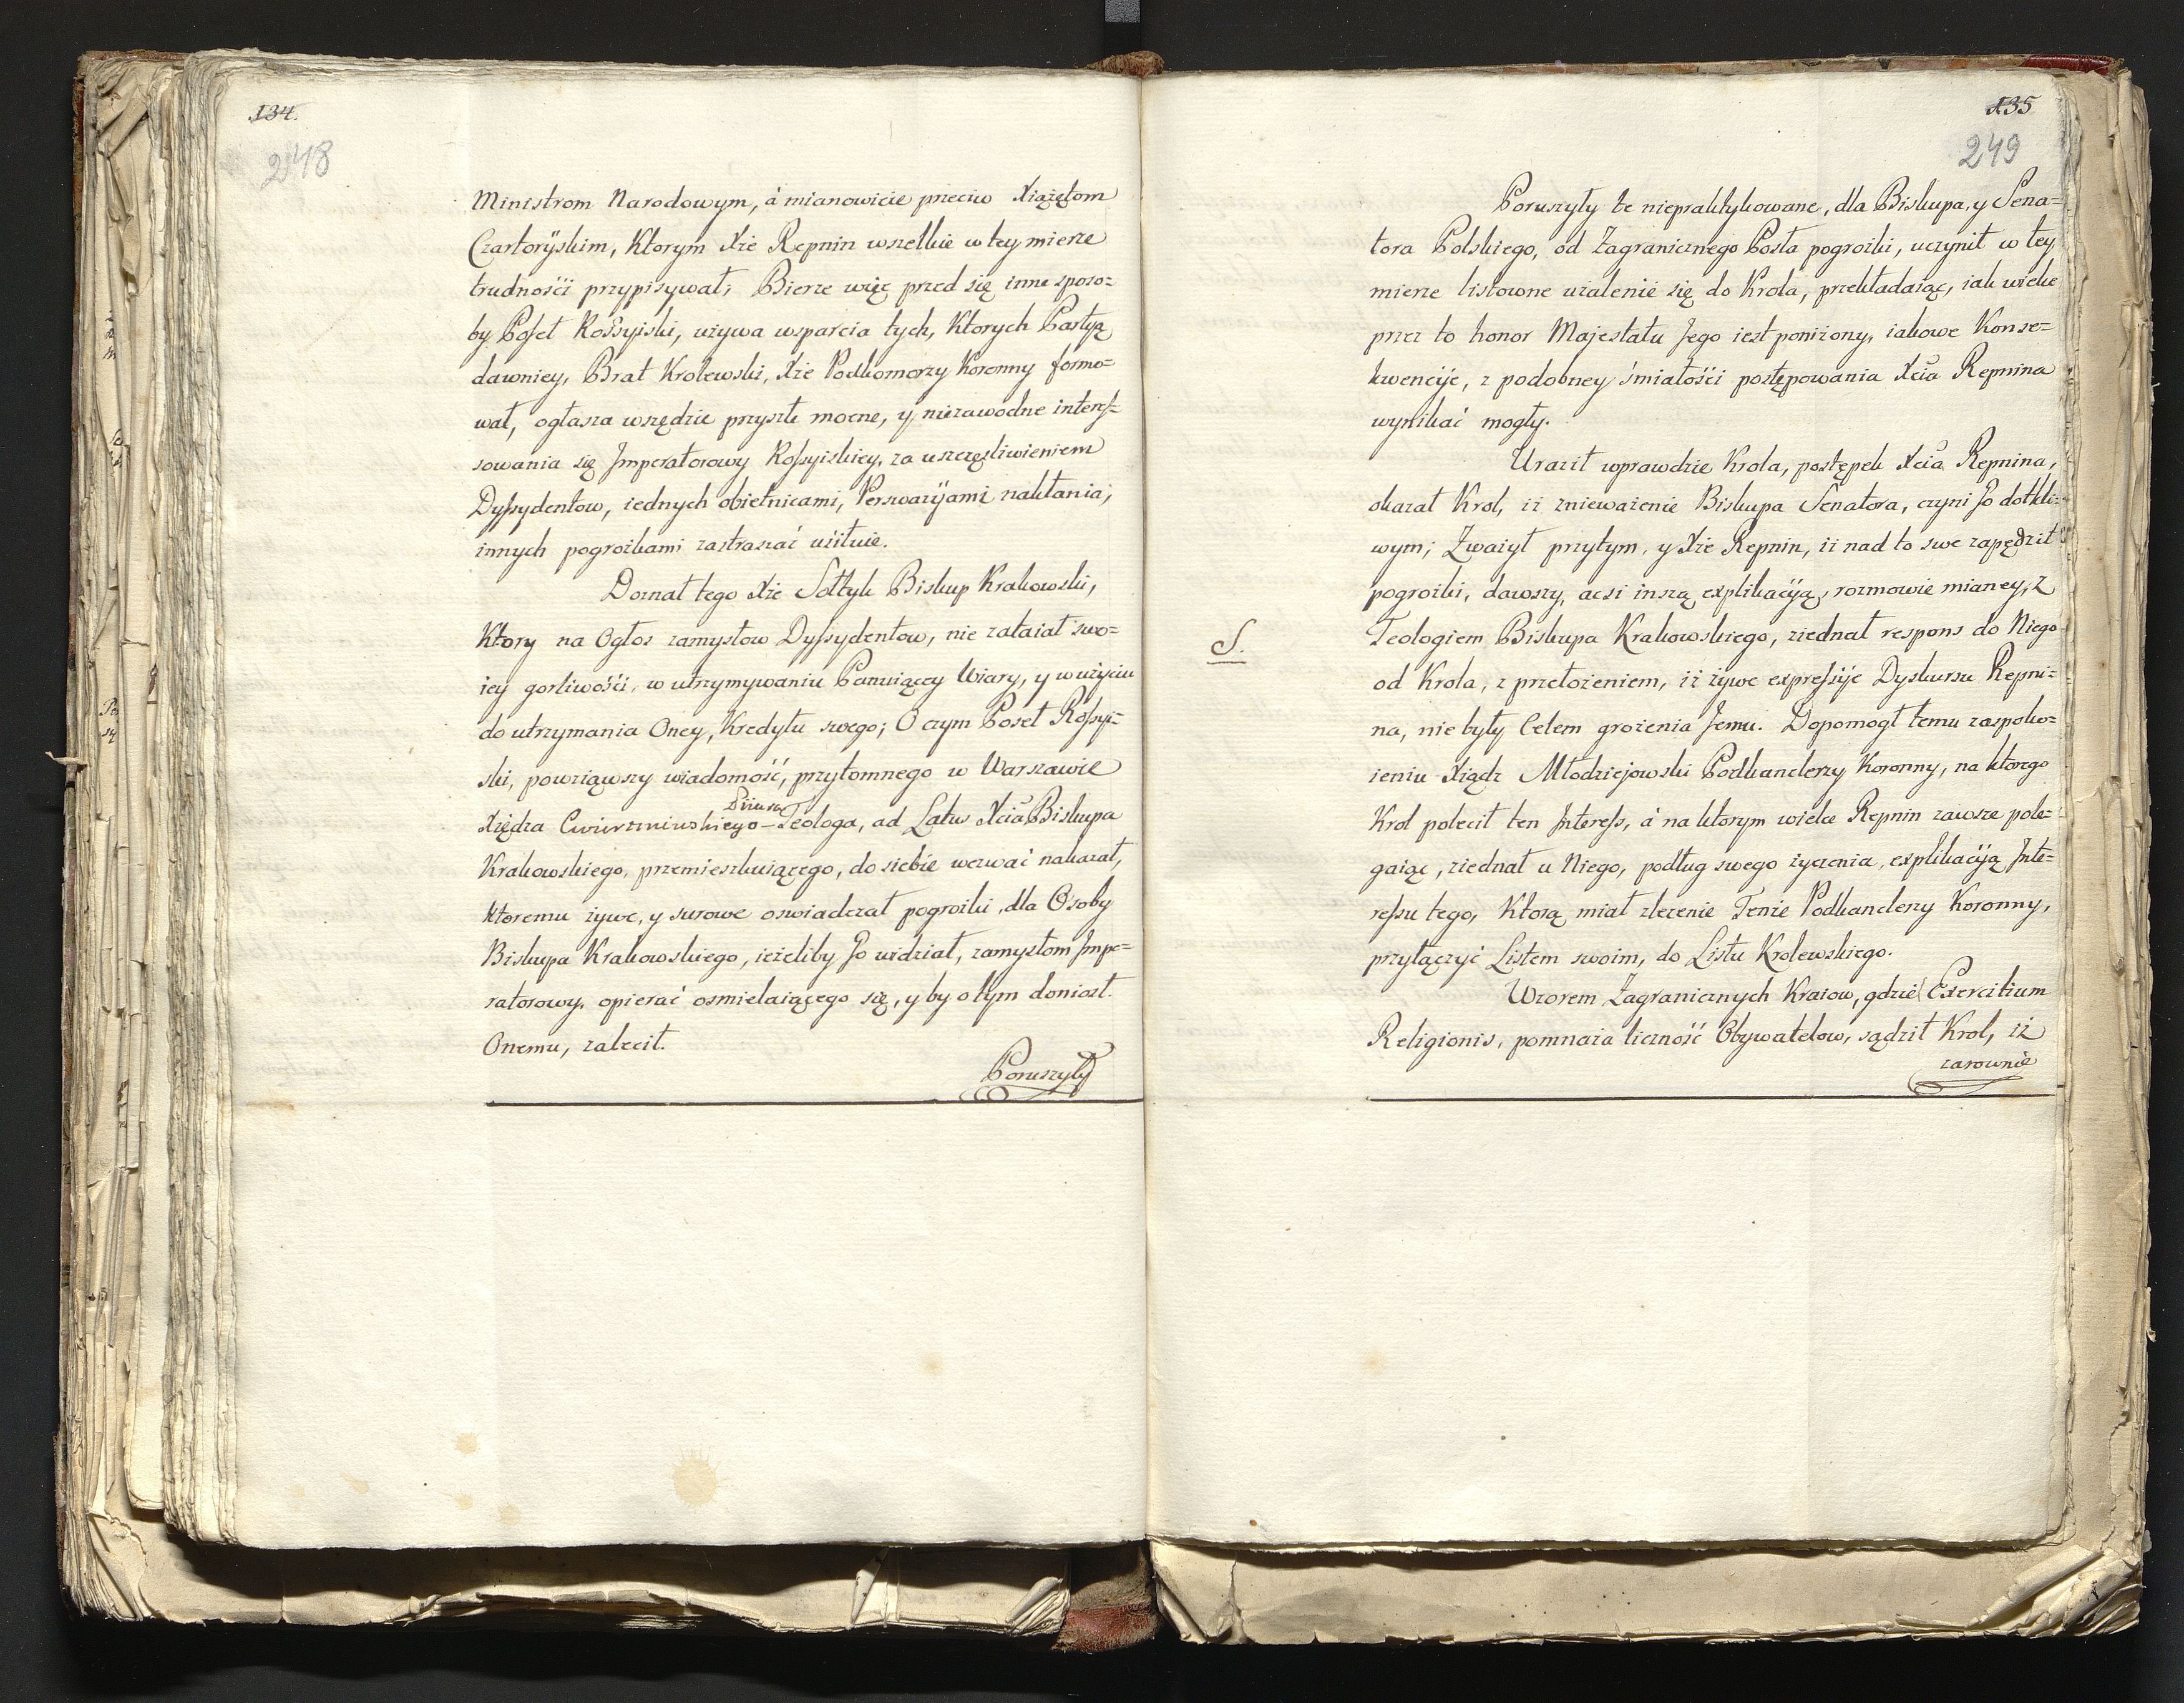 134.
248
Ministrom Narodowym, á mianowicie przeciw Xiążętom
Czartoryskim, Ktorym Xże Repnin wszelkie w tey mierze
trudności przypisywał; Bierze więc przed się inne sposo=
by Poseł Rossyiski, używa wsparcia tych, Ktorych Partyą
dawniey, Brat Krolewski, Xże Podkomorzy Koronny formo=
wał, ogłasza wszędzie przyszłe mocne, y niezawodne interes=
sowania się Jmperatorowy Rossyiskiey, za uszczęśliwieniem
Dyssydentow, iednych obietnicami, Perswazyjami nakłania;
innych pogrożkami zastraszać usiłuie.
Doznał tego Xże Sołtyk Biskup Krakowski,
Ktory na Ogłos zamysłow Dyssydentow, nie zataiał swo=
iey gorliwości, w utrzymywaniu Panuiącey Wiary, y w użyciu
do utrzymania Oney, Kredytu swego; O czym Poseł Rossyi=
ski, powziąwszy wiadomość, przytomnego w Warszawie
Xiędza Teologa, ad Latus Xcia Biskupa
Krakowskiego, przemieszkuiącego, do siebie wezwać nakazał,
ktoremu żywe, y surowe oswiadczał pogrożki, dla Osoby
Biskupa Krakowskiego, ieżeliby Jo widział, zamysłom Jmpe=
ratorowy, opierać osmielaiącego się, y by o tym doniosł.
Onemu, zalecił.
Poruszyły
135
249
Poruszyły te niepraktykowane, dla Biskupa, y Sena=
tora Polskiego, od Zagranicznego Posła pogrożki, uczynił w tey
mierze listowne użalenie się do Krola, przekładaiąc, iak wiele
przez to honor Majestatu Jego iest poniżony, iakowe Konse=
kwencyje, z podobney śmiałości postępowania Xcia Repnina
wynikać mogły.
Uraził wprawdzie Krola, postępek Xcia Repnina,
okazał Krol, iż znieważenie Biskupa Senatora, czyni Jo dotkli=
wym; Zważył przytym, y Xże Repnin, iż nad to swe zapędził
pogrożki, dawszy, acsi inszą explikacyją, rozmowie mianey, z
S.
Teologiem Biskupa Krakowskiego, ziednał respons do Niego
od Krola, z przełożeniem, iż żywe expressyje Dyskursu Repni=
na, nie były Celem grożenia Jemu. Dopomogł temu zaspoko=
ieniu Xiądz Młodziejowski Podkanclerzy Koronny, na ktorego
Krol polecił ten Jnteress, á na ktorym wiele Repnin zawsze pole=
gaiąc, ziednał u Niego, podług swego życzenia, explikacyją Jnte=
ressu tego, Ktorą miał zlecenie Tenże Podkanclerzy Koronny,
przyłączyć Listem swoim, do Listu Krolewskiego.
Wzorem Zagranicznych Kraiow, gdzie Exercitium
Religionis, pomnaża liczność Obywatelow, sądził Krol, iż
zarownie